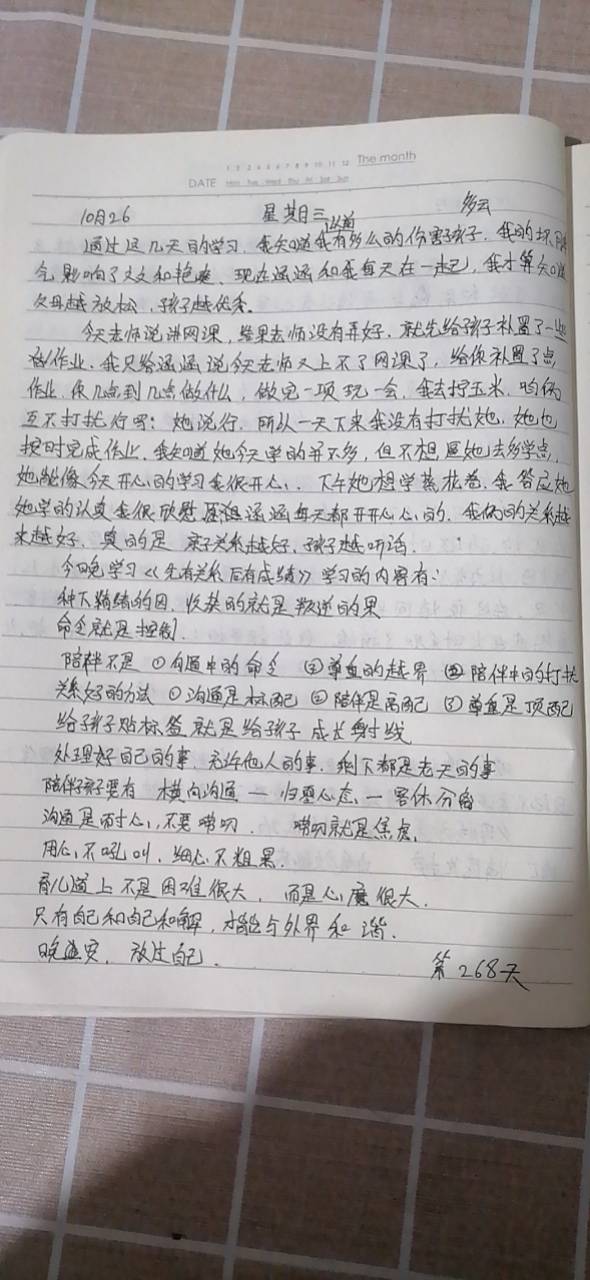 1 2 3 4 5 6 7 8 9 10 11 12 The month
DATE Mon Tue Wed Thu Fri Sat Sun
10月26 星期三 多云
以前
通过这几天的学习，我知道我有多么的伤害孩子，我的坏脾
气影响了文文和艳 现在涵涵和我每天在一起，我才算知道
父母越放松，孩子越优秀。
今天老师说讲网课，结果老师没有弄好，就先给孩子补置了一些
作业，我只给涵涵说今天老师又上不了网课了，给你补置了点
作业，你几点到几点做什么，做完一项玩一会，我去拧玉米，咱俩
互不打扰行吗？她说行，所以一天下来我没有打扰她，她也
按时完成作业，我知道她今天学的并不多，但不想逼她去多学点，
她能像今天开心的学习我很开心，下午她想学蒸花卷，我答应她
她学的认真我很欣慰 愿望涵涵每天都开开心心的，我俩的关系越
来越好，真的是 亲子关系越好，孩子越听话．
今晚学习《先有关系后有成绩》学习的内容有：
种下情绪的因，收获的就是叛逆的果
命令就是控制．
陪伴不是 ①沟通中的命令 ②尊重的越界 ③陪伴中的打扰
关系好的方法 ①沟通是标配 ②陪伴是高配 ③尊重是顶配
给孩子贴标签就是给孩子成长射线
处理好自己的事，允许他人的事，剩下都是老天的事
陪伴孩子要有 横向沟通 一 归零心态 一 客体分离
沟通是耐心，不要唠叨． 唠叨就是焦虑，
用心，不吼叫，细心不粗暴．
育儿道上不是困难很大，而是心魔很大．
只有自己和自己和解，才能与外界和谐．
晚安，放过自己．
第268天